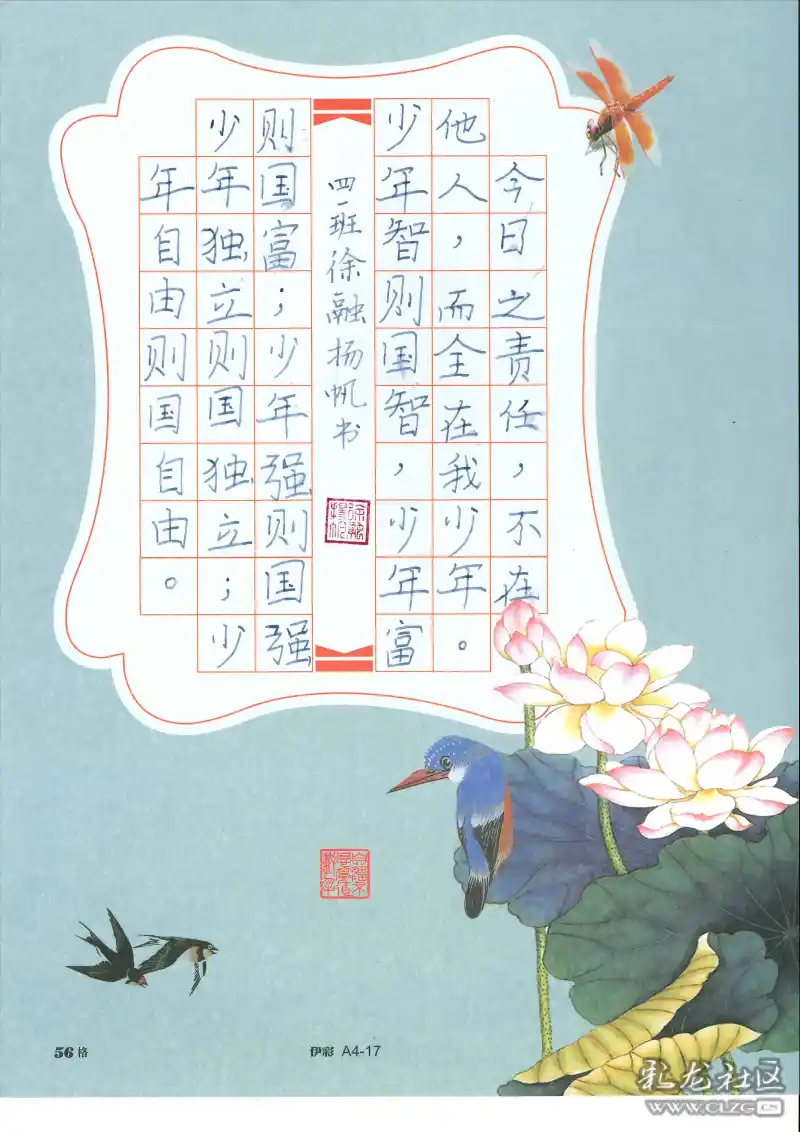 今日之责任，不在
他人，而全在我少年。
少年智则国智，少年富
四一班徐融杨帆书
则国富；少年强则国强
少年独立则国独立；少
年自由则国自由。
56格
伊彩 A4-17
彩龙社区
www.CLZG.CN